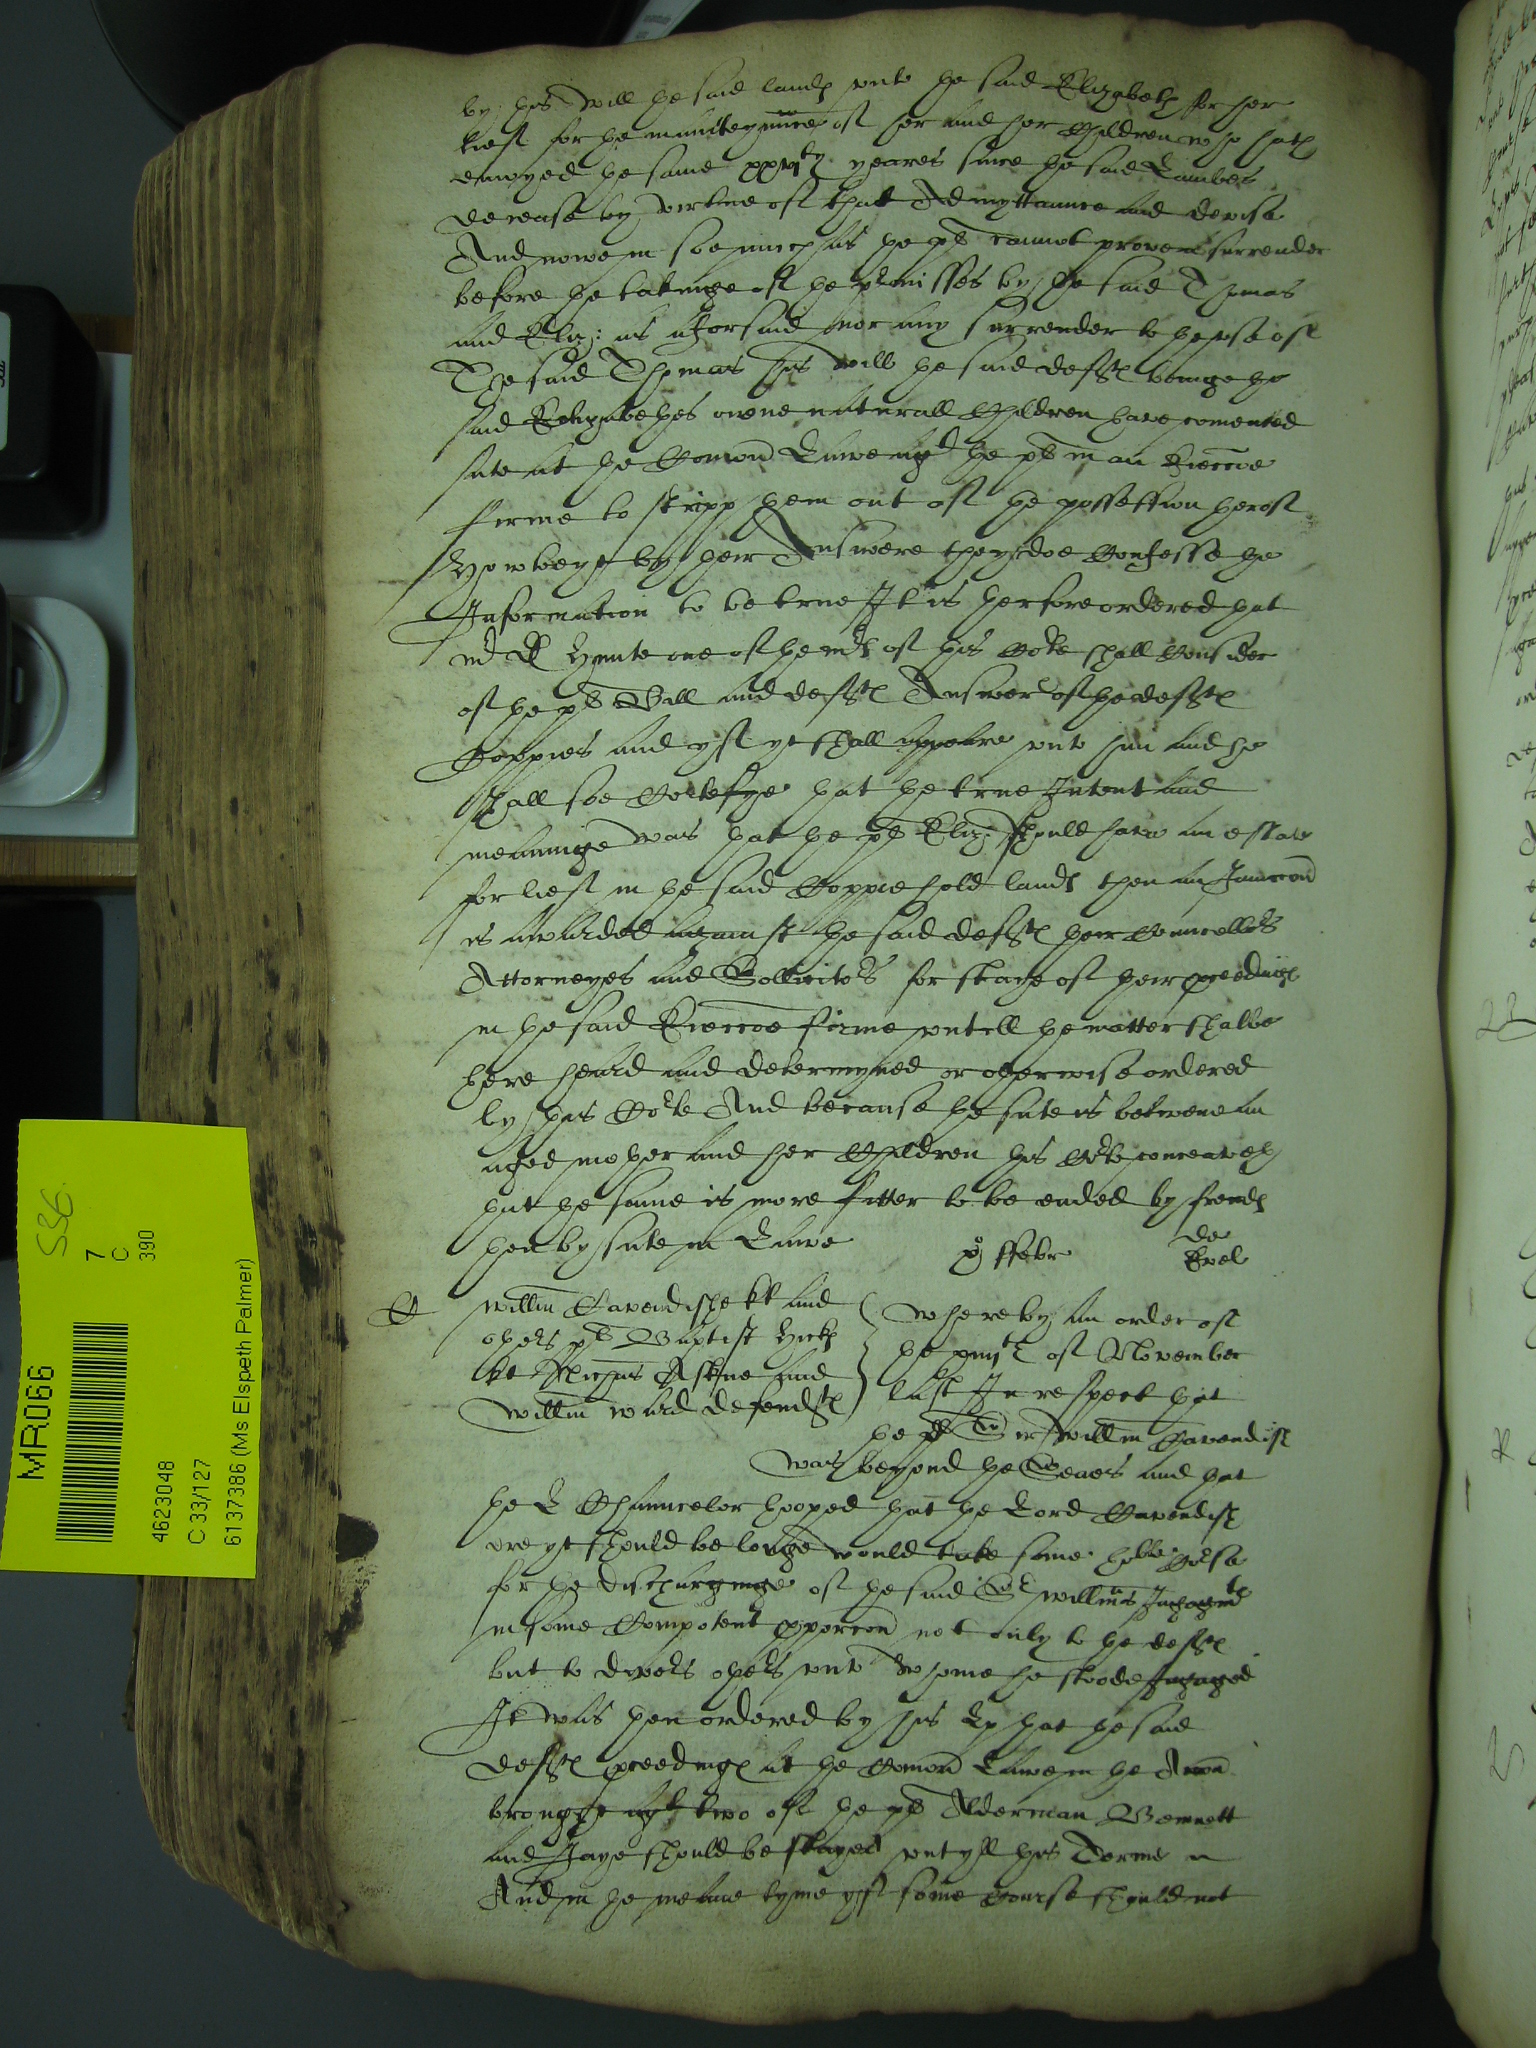 by this will the said landes unto the said Elizabeth for her
lief for the mainteynnce of her and her Children who hath
enioyed the same yeares since the said Lambes
decease by vertue of that Admyttaunce and devise
And nowe in soe much as the plt cannot prove a surrender
before the takinge of the premisses by the said Thomas
and Eliz: as aforsaid nor any surrender to the use of
The said Thomas his will the said deftes beinge the
said Elizabethes owne naturall Children have comenced
sute at the Comon Lawe agt the plt in an Eieccoe
firme to stripp them out of the possession therof
Howbeyt by their Answere they doe Confesse the
Information to be true It is therfore ordered that
mr one of the mrs of this Corte shall Consider
of the plt Bill and deftes Answer of the deftes
Coppies and yf yt shall appeare unto him and he
shall soe Certefye that the true Intent and
meaninge was that the plt Eliz: should have an estate
for lief in the said Coppiehold landes then an Iniuncon
is awarded against the said deftes their Councellors
Attorneyes and Sollicitors for staye of their proceedinges
in the said Eieccoe firme untill the matter shalbe
here heard and determyned or otherwise ordered
by this Corte And because the sute is betwene an
aged mother and her Children this Corte conceaveth
that the same is more fitter to be ended by frendes
then by sute in Lawe
ffebr
de
Evel
C
Willm Cavendishe kt and
others plt Baptist Hickes
kt Askue and
Willm Ward defendtes
Whereby an order of
the of November
last In respect that
the plt Sir Willm Cavendish
was beyond the Seaes and that
the L Chauncelor hooped that the Lord Cavendish
ore yt should be longe would take some Corse
for the dischardginge of the said Sr Willms Ingagemtes
in some Competent pporcon not only to the deftes
but to divers others unto whome he stoode Ingaged
It was then ordered by his Lp that the said
deftes proceedinges at the Comon Lawe in the Accon
brought agt two of the plt Alderman Bennett
and Jaye should be stayed untyll this Terme
And in the meane tyme yf some Course should not
MR066
536
7
C
390
4623048
C 33/127
6137386 (Ms Elspeth Palmer)